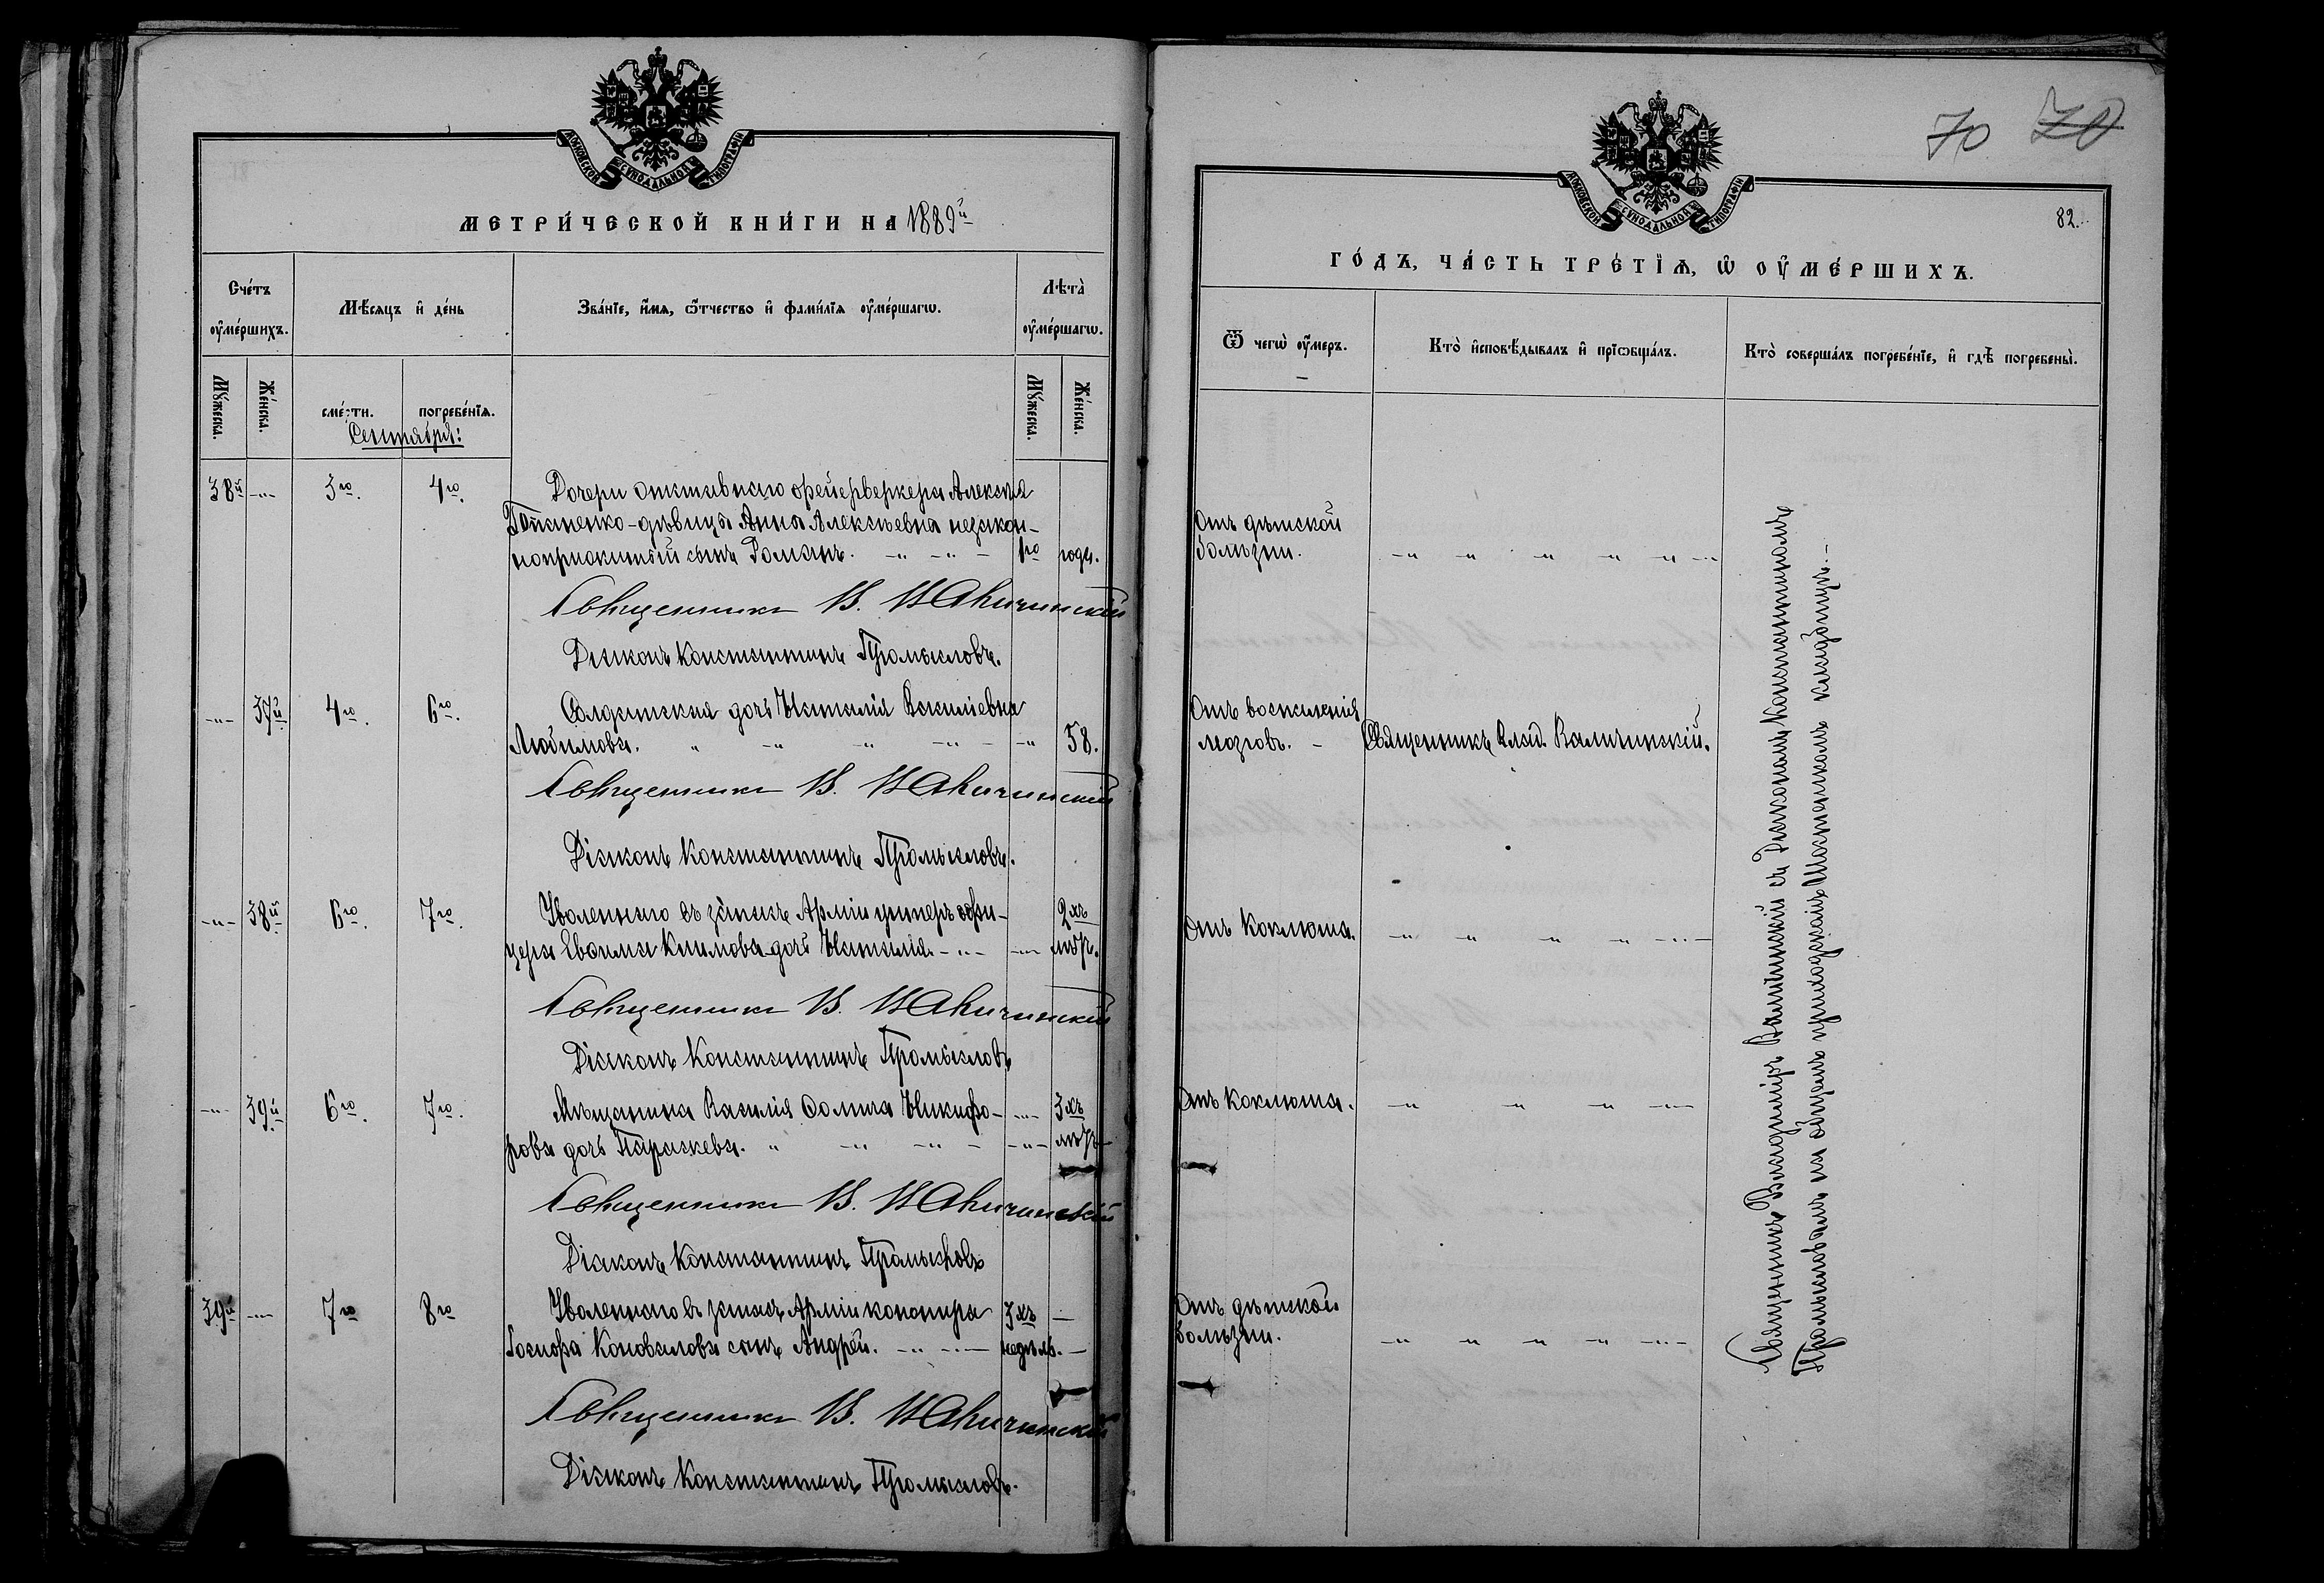 МОСКОВСКОЙ СѴНОДАЛЬНОЙ ТИПОГРАФІИ
МЕТРИ́ЧЕСКОЙ КНИ́ГИ НА 1889й
Сче́тъ ᲂу҆ме́ршихъ.
Мѣ́сяцъ и҆ де́нь
Зва́нїе, и҆́мя, ѻ҆́тчество и҆ фами́лїя ᲂу҆ме́ршагѡ.
Лѣта̀ ᲂу҆ме́ршагѡ.
Мꙋ́жеска.
Же́нска.
сме́рти.
погребе́нїѧ.
Мꙋ́жеска.
Же́нска.
Сентября:
38й -"- 3го. 4го. Дочери отставнаго фейерверкера Алексѣя
Потапенко-дѣвицы Анны Алексѣевны незакон-
норожденный сынъ Романъ. -"- -"- - 1го года.
Священникъ В. Валичинскій
Діаконъ Константинъ Промысловъ.
-"- 37й 4го. 6го. Солдатская дочь Наталія Васильевна
Любимова. " -"- -"- -"- - -"- 58.
Священникъ В. Валичинскій
Діаконъ Константинъ Промысловъ.
-"- 38й 6го. 7го. Уволеннаго въ запасъ Арміи унтеръ офи-
цера Ефима Климова дочь Наталія. -"- -"- 2хъ лѣтъ.
Священникъ В. Валичинскій
Діаконъ Константинъ Промысловъ
-"- 39й 6го. 7го. Мѣщанина Василія Фомича Никифо- -"- 3хъ
рова дочь Параскева. " -"- -"- - -"- лѣтъ
Священникъ В. Валичинскій
Діаконъ Константинъ Промысловъ
39й -"- 7го 8го Уволеннаго въ запасъ Арміи канонира 3хъ —
Коновалова сынъ Андрей. -"- -"- недѣль. —
Священникъ В. Валичинскій
Діаконъ Константинъ Промысловъ.
70 70
МОСКОВСКОЙ СѴНОДАЛЬНОЙ ТИПОГРАФІИ
82.
ГО́ДЪ, ЧА́СТЬ ТРЕ́ТЇѦ, Ѡ҆ ОУ҆МЕ́РШИХЪ.
Ѿ чегѡ̀ ᲂу҆́меръ.
Кто̀ и҆сповѣ́дывалъ и҆ прїѡбща́лъ.
Кто̀ соверша́лъ погребе́нїе, и҆ гдѣ̀ погребены̀.
Отъ дѣтской
болѣзни. -"- -"- -"- -"- -"- -"-
Отъ воспаленія
мозговъ. - Священникъ Влад. Валичинскій.
Отъ коклюша. -"- -"- -"- -"- -"-
Отъ коклюша. -"- -"- -"- -"-
Отъ дѣтской
болѣзни. -"- -"- -"- -"- -"-
Священникъ Владиміръ Валичинскій съ Діакономъ Константиномъ
Промысловымъ на общемъ приходскомъ кладбищѣ.